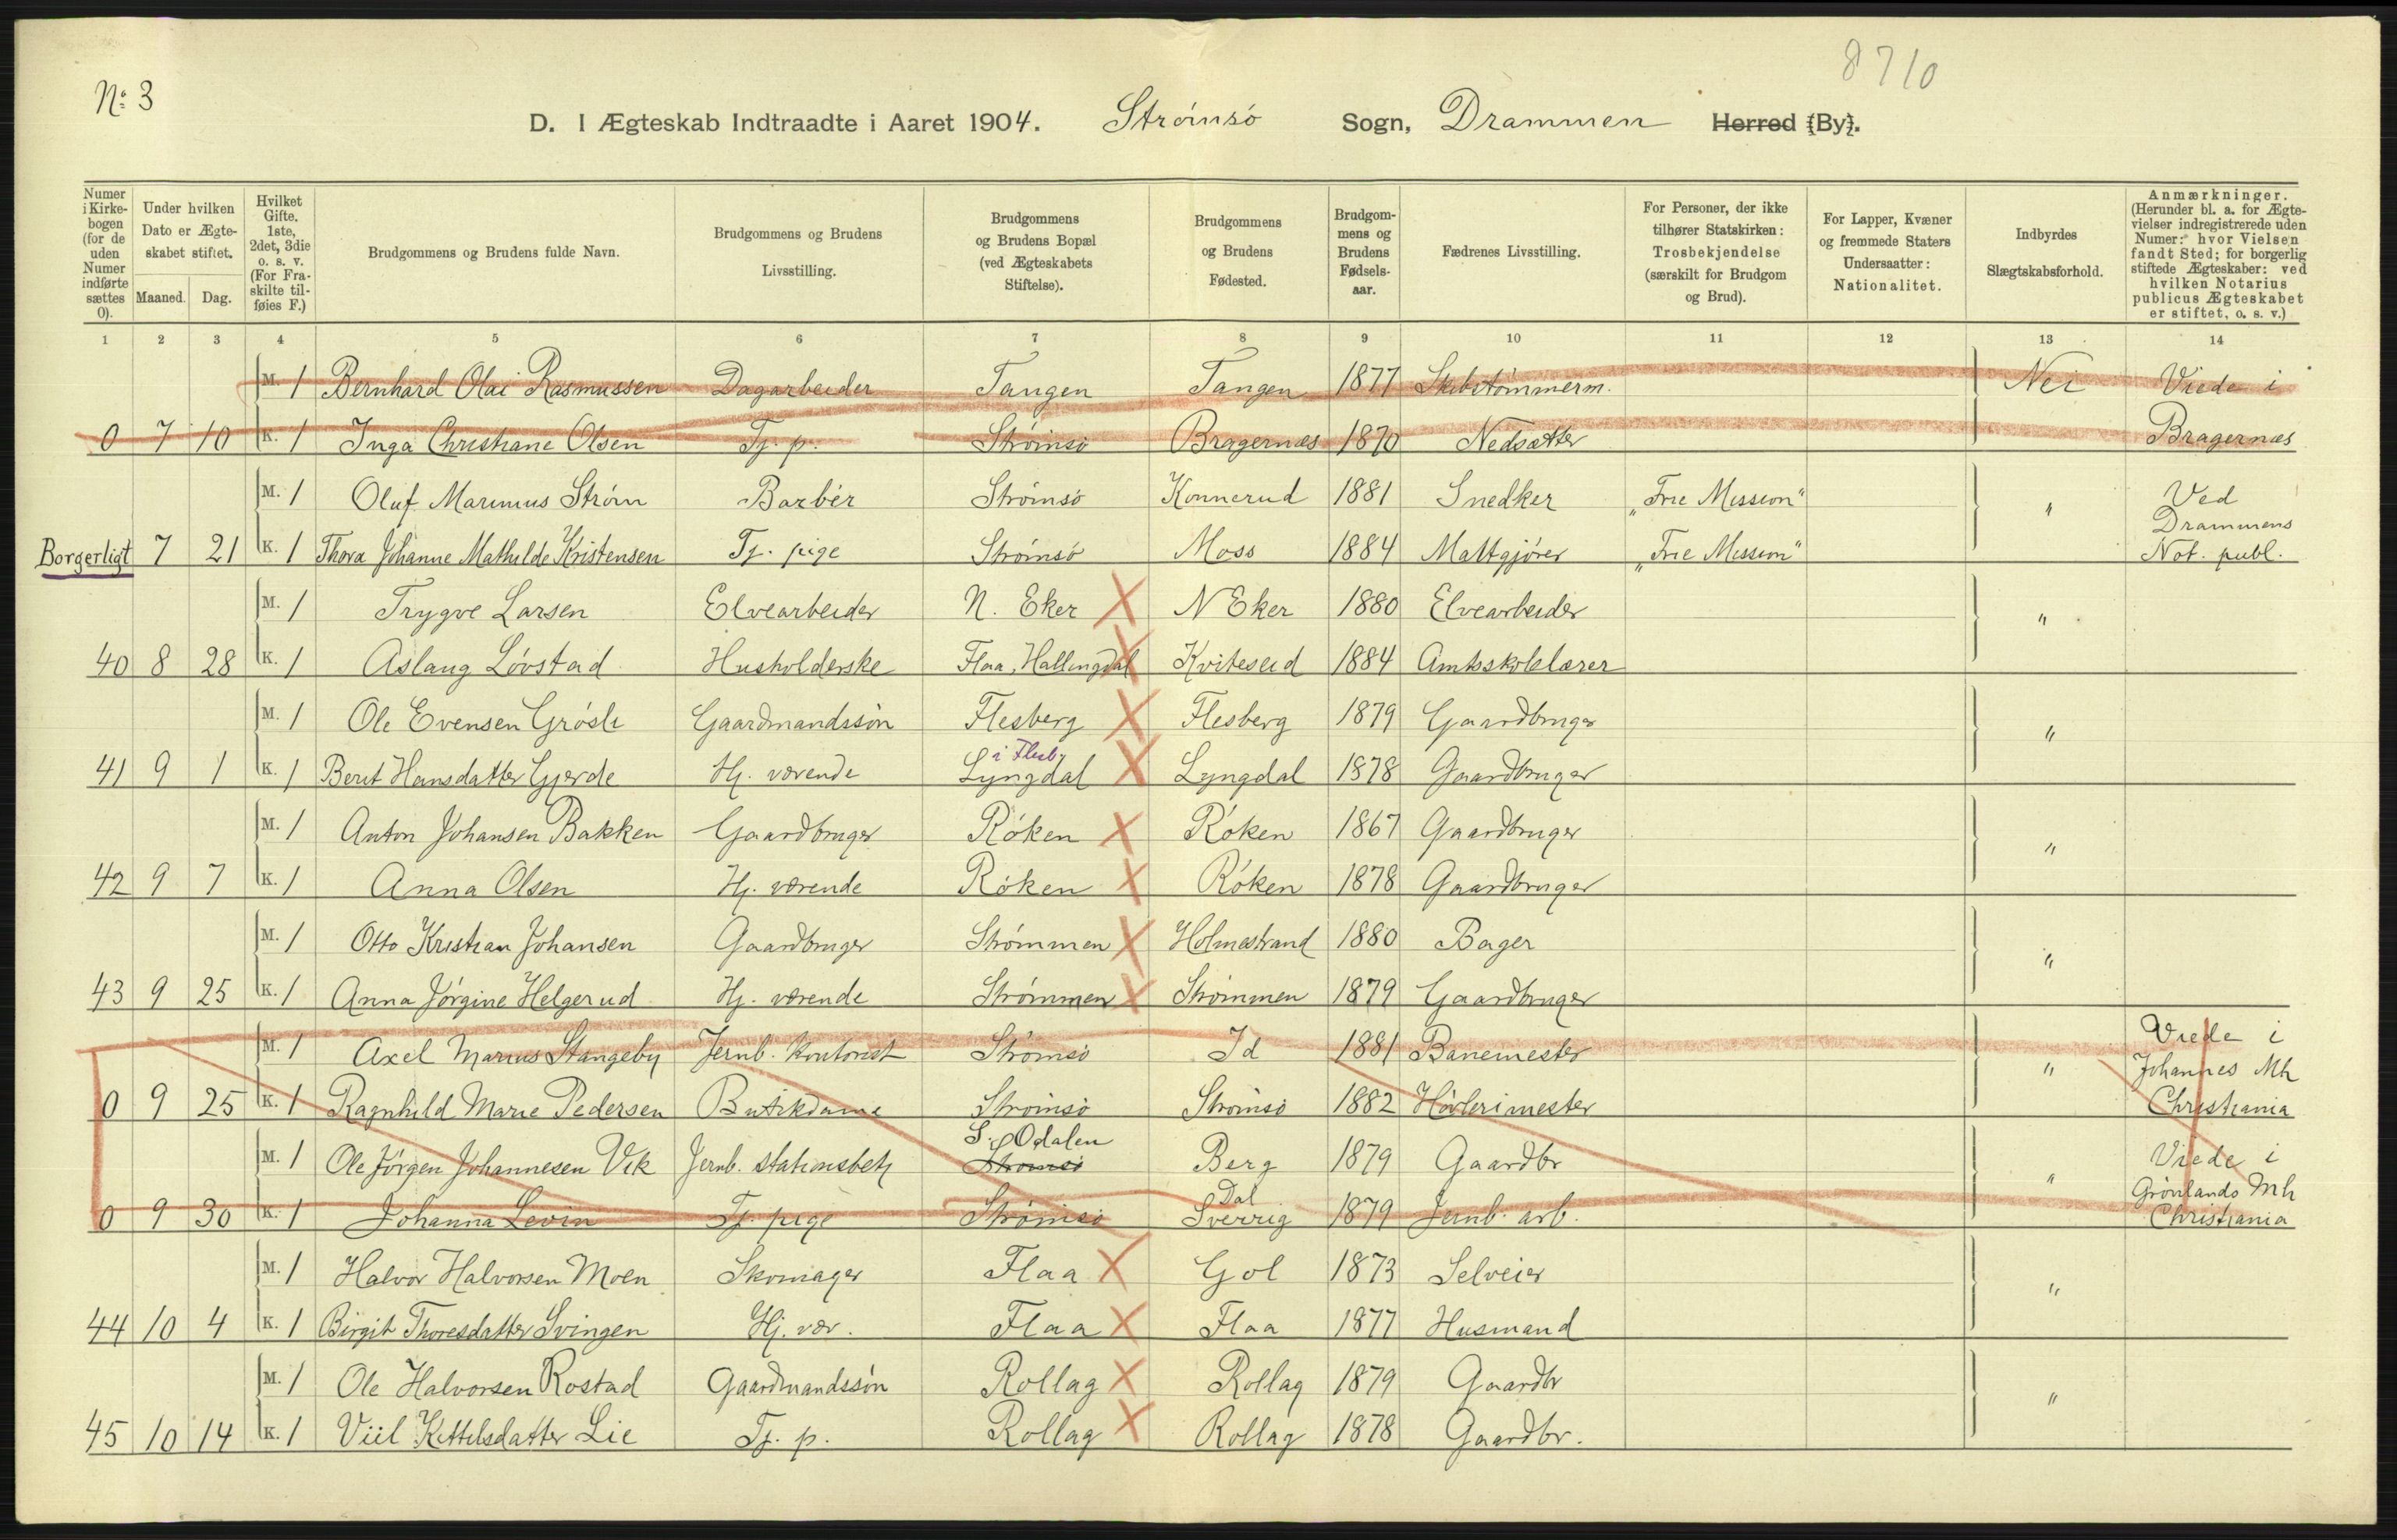 8710
No 3
D. I Ægteskab Indtraadte i Aaret 1904. Strømsø Sogn, Drammen Herred (By).
Numer i Kirke-bogen (for de uden Numer indførte sættes 0).
Under hvilken Dato er Ægte-skabet stiftet.
Maaned. Dag.
Hvilket Gifte. 1ste, 2det, 3die o. s. v. (For Fra-skilte til-føies F.)
Brudgommens og Brudens fulde Navn.
Brudgommens og Brudens Livsstilling.
Brudgommens og Brudens Bopæl (ved Ægteskabets Stiftelse).
Brudgommens og Brudens Fødested.
Brudgom-mens og Brudens Fødsels-aar.
Fædrenes Livsstilling.
For Personer, der ikke tilhører Statskirken: Trosbekjendelse (særskilt for Brudgom og Brud).
For Lapper, Kvæner og fremmede Staters Undersaatter: Nationalitet.
Indbyrdes Slægtskabsforhold.
Anmærkninger. (Herunder bl. a. for Ægte-vielser indregistrerede uden Numer: hvor Vielsen fandt Sted; for borgerlig stiftede Ægteskaber: ved hvilken Notarius publicus Ægteskabet er stiftet, o. s. v.)
1 2 3 4 5 6 7 8 9 10 11 12 13 14
M. 1 Bernhard Olai Rasmussen Dagarbeider Tangen Tangen 1877 Skibstømmerm. Nei Viede i
0 7 10 K. 1 Inga Christiane Olsen Tj. p. Strømsø Bragernæs 1870 Nedsætter Bragernæs
M. 1 Oluf Marinius Strøm Barbér Strømsø Konnerud 1881 Snedker „Frie Mission" " Ved
Drammens
Borgerligt 7 21 K. 1 Thora Johanne Mathilde Kristensen Tj. pige Strømsø Moss 1884 Maltgjører „Frie Mission" Not. publ.
M. 1 Trygve Larsen Elvearbeider N. Eker N Eker 1880 Elvearbeider "
40 8 28 K. 1 Aslaug Løvstad Husholderske Flaa, Hallingdal Kviteseid 1884 Amtsskolelærer
M. 1 Ole Evensen Grøsli Gaardmandssøn Flesberg Flesberg 1879 Gaardbruger "
i Flesb.
41 9 1 K. 1 Berit Hansdatter Gjerde Hj. værende Lyngdal Lyngdal 1878 Gaardbruger
M. 1 Anton Johansen Bakken Gaardbruger Røken Røken 1867 Gaardbruger "
42 9 7 K. 1 Anna Olsen Hj. værende Røken Røken 1878 Gaardbruger
M. 1 Otto Kristian Johansen Gaardbruger Strømmen Holmestrand 1880 Bager "
43 9 25 K. 1 Anna Jørgine Helgerud Hj. værende Strømmen Strømmen 1879 Gaardbruger
M. 1 Axel Marius Stangeby Jernb. Kontorist Strømsø Id 1881 Banemester " Viede i
Johannes Mh
0 9 25 K. 1 Ragnhild Marie Pedersen Butikdame Strømsø Strømsø 1882 Høvlerimester Christiania
S. Odalen
M. 1 Ole Jørgen Johannesen Vik Jernb. stationsbetj Strømsø Berg 1879 Gaardbr " Viede i
Dal Grønlands Mh
0 9 30 K. 1 Johanna Levin Tj. pige Strømsø Sverrig 1879 Jernb. arb. Christiania
M. 1 Halvor Halvorsen Moen Skomager Flaa Gol 1873 Selveier "
44 10 4 K. 1 Birgit Thoresdatter Svingen Hj. vær. Flaa Flaa 1877 Husmand
M. 1 Ole Halvorsen Rostad Gaardmandssøn Rollag Rollag 1879 Gaardbr "
45 10 14 K. 1 Viil Kittilsdatter Lie Tj. p. Rollag Rollag 1878 Gaardbr.